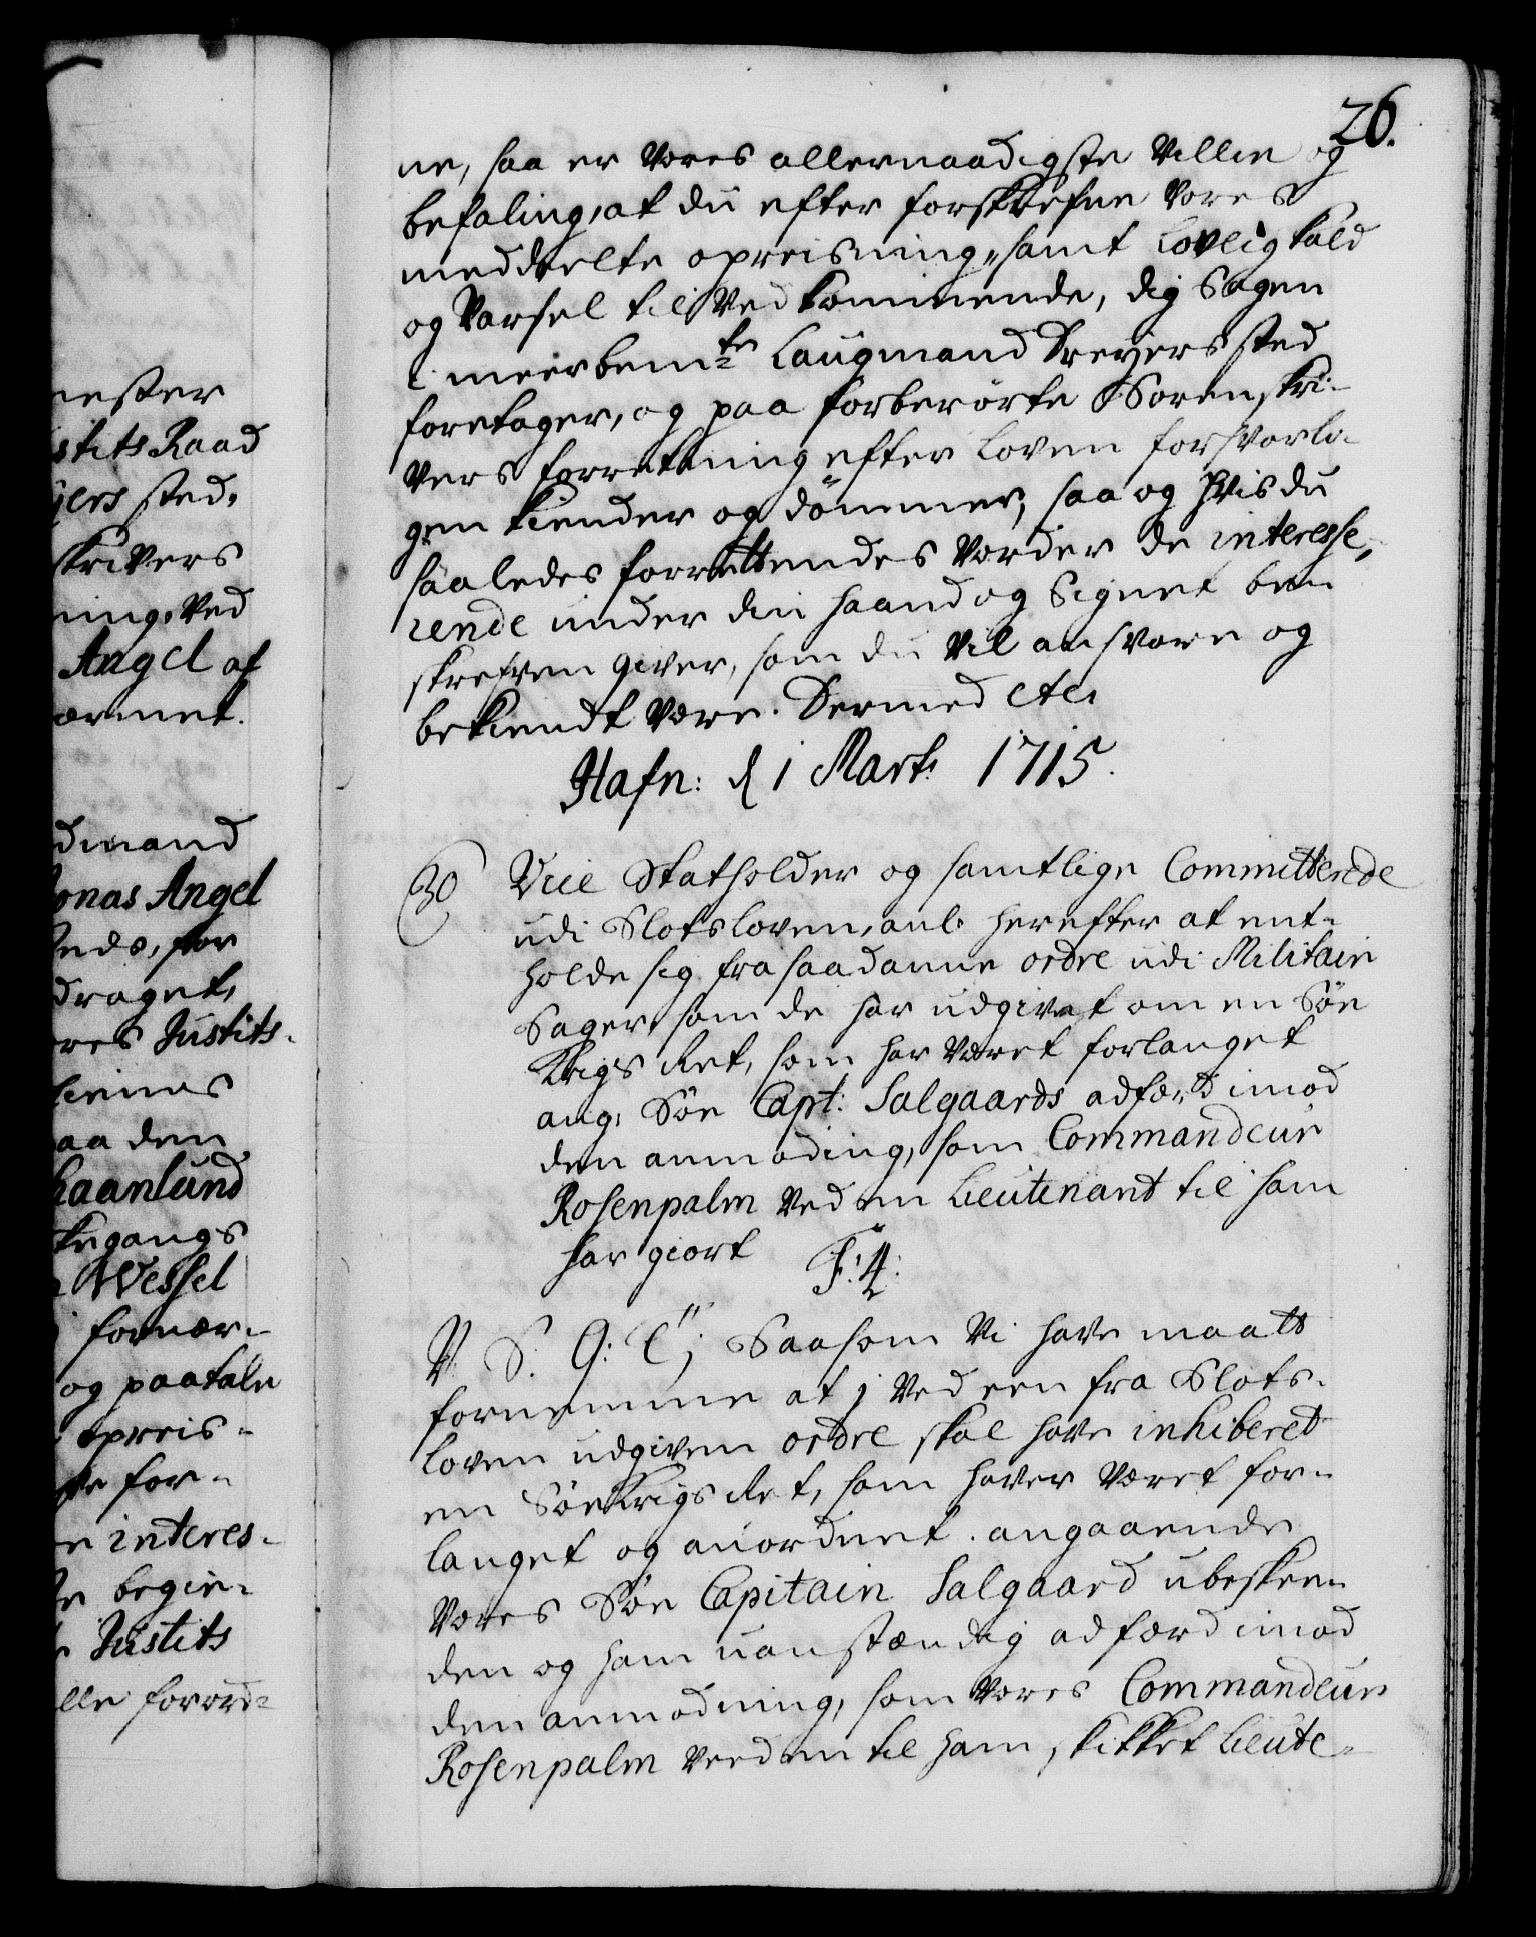 26.
ne, saa er Vores allernaadigste Villie og
befaling, at du efter forskrefne Vores
meddeelte opreisning, samt Lovlig kald
og Varsel til Vedkommende, dig Sagen
i meerbemte Laugmand Dreyers sted
foretager, og paa forberørte Sorenskri-
vers forretning efter Loven forsvarli-
gen kiender og dømmer, saa og hvis du
saaledes forrettendes Vorder de interesse-
rende under din haand og Signet be-
skrefven giver, som du vil ansvare og
bekiendt være. Dermed etc.
Hafn: d 1 Marti 1715.
30 Vice Statholder og samtlige Committerede
udi Slotsloven, anl: herefter at ent-
holde sig fra saadanne ordre udi Militair
Sager, som de har udgivet om en Søe
Krigs Ret, som har været forlanget
ang: Søe Capt: Salgaards adfærd imod
den anmoding, som Commandeur
Rosenpalm Ved en Lieutenant til ham
har giort F: 4.
V. S. G: T; Saasom Vi have maatt
fornemme at j Ved een fra Slots-
loven udgiven ordre skal have inhiberet
en Søe Krigs Ret, som haver været for-
langet og anordnet angaaende
Vores Søe Capitain Salgaard ubeskee-
den og ham uanstændig adfærd imod
den anmodning, som Vores Commandeur
Rosenpalm Veed en til ham skikket Lieute-
mester
stits Raad
yers sted,
skrivers
ning, Ved
Angel af
ærmet.
dmand
Jonas Angel
steds, for
draget,
res Justits-
kiennes
aa den
haanlund
tegangs
Wessel
fornær-
og paatale
opreis-
for-
interes-
begie-
Justits
lle forord-